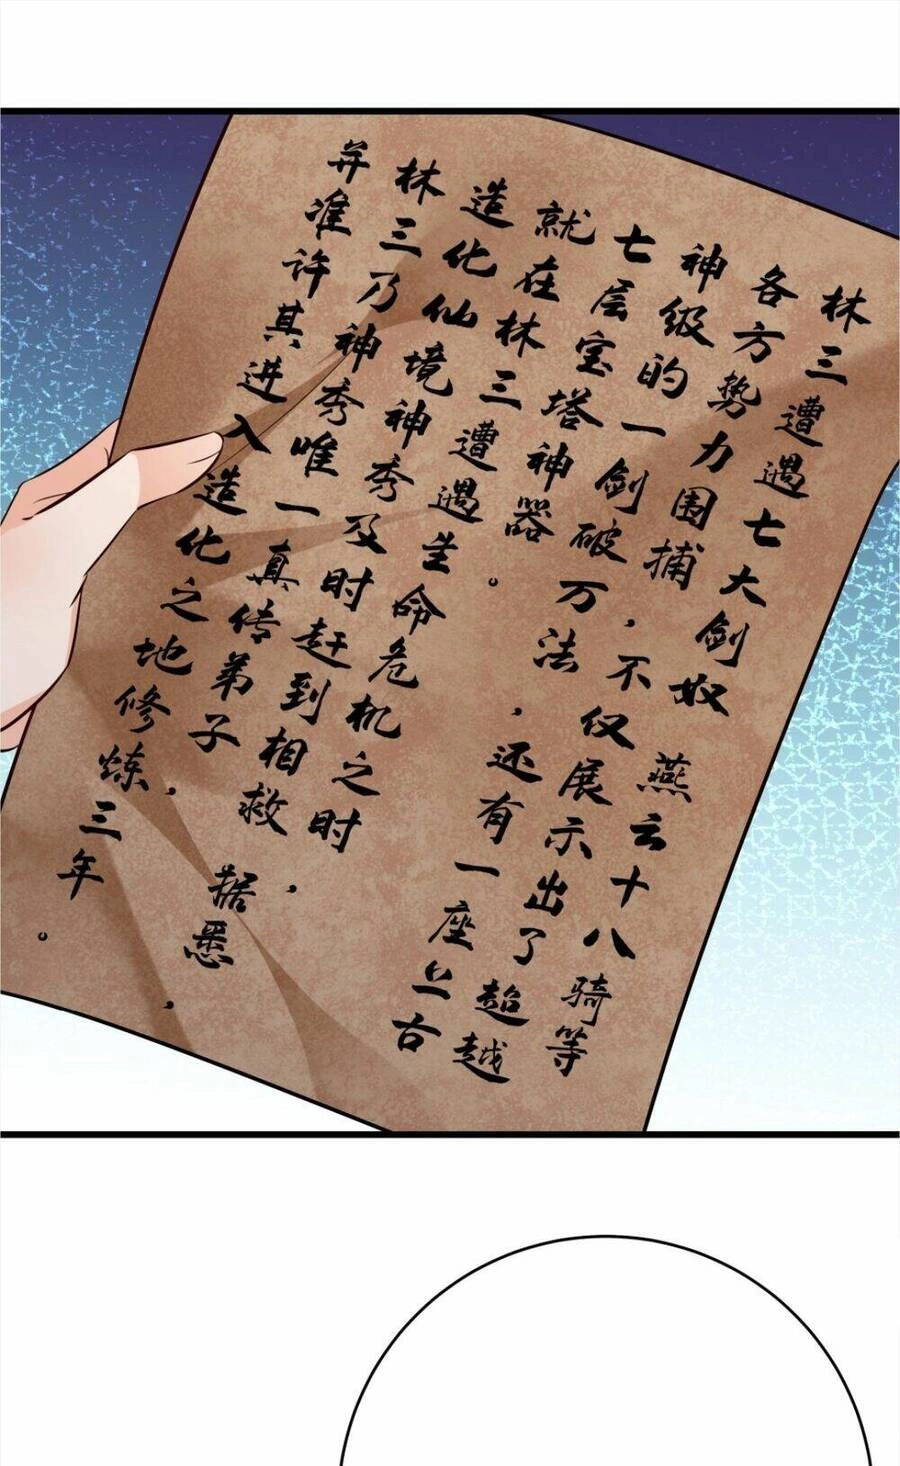 林三遭遇七大剑奴 燕云十八骑等
各方势力围捕，不仅展示出了超越
神级的一剑破万法，还有一座上古
七层宝塔神器。
就在林三遭遇生命危机之时
造化仙境神秀及时赶到相救，
林三乃神秀唯一真传弟子 据悉，
并准许其进入造化之地修炼三年。